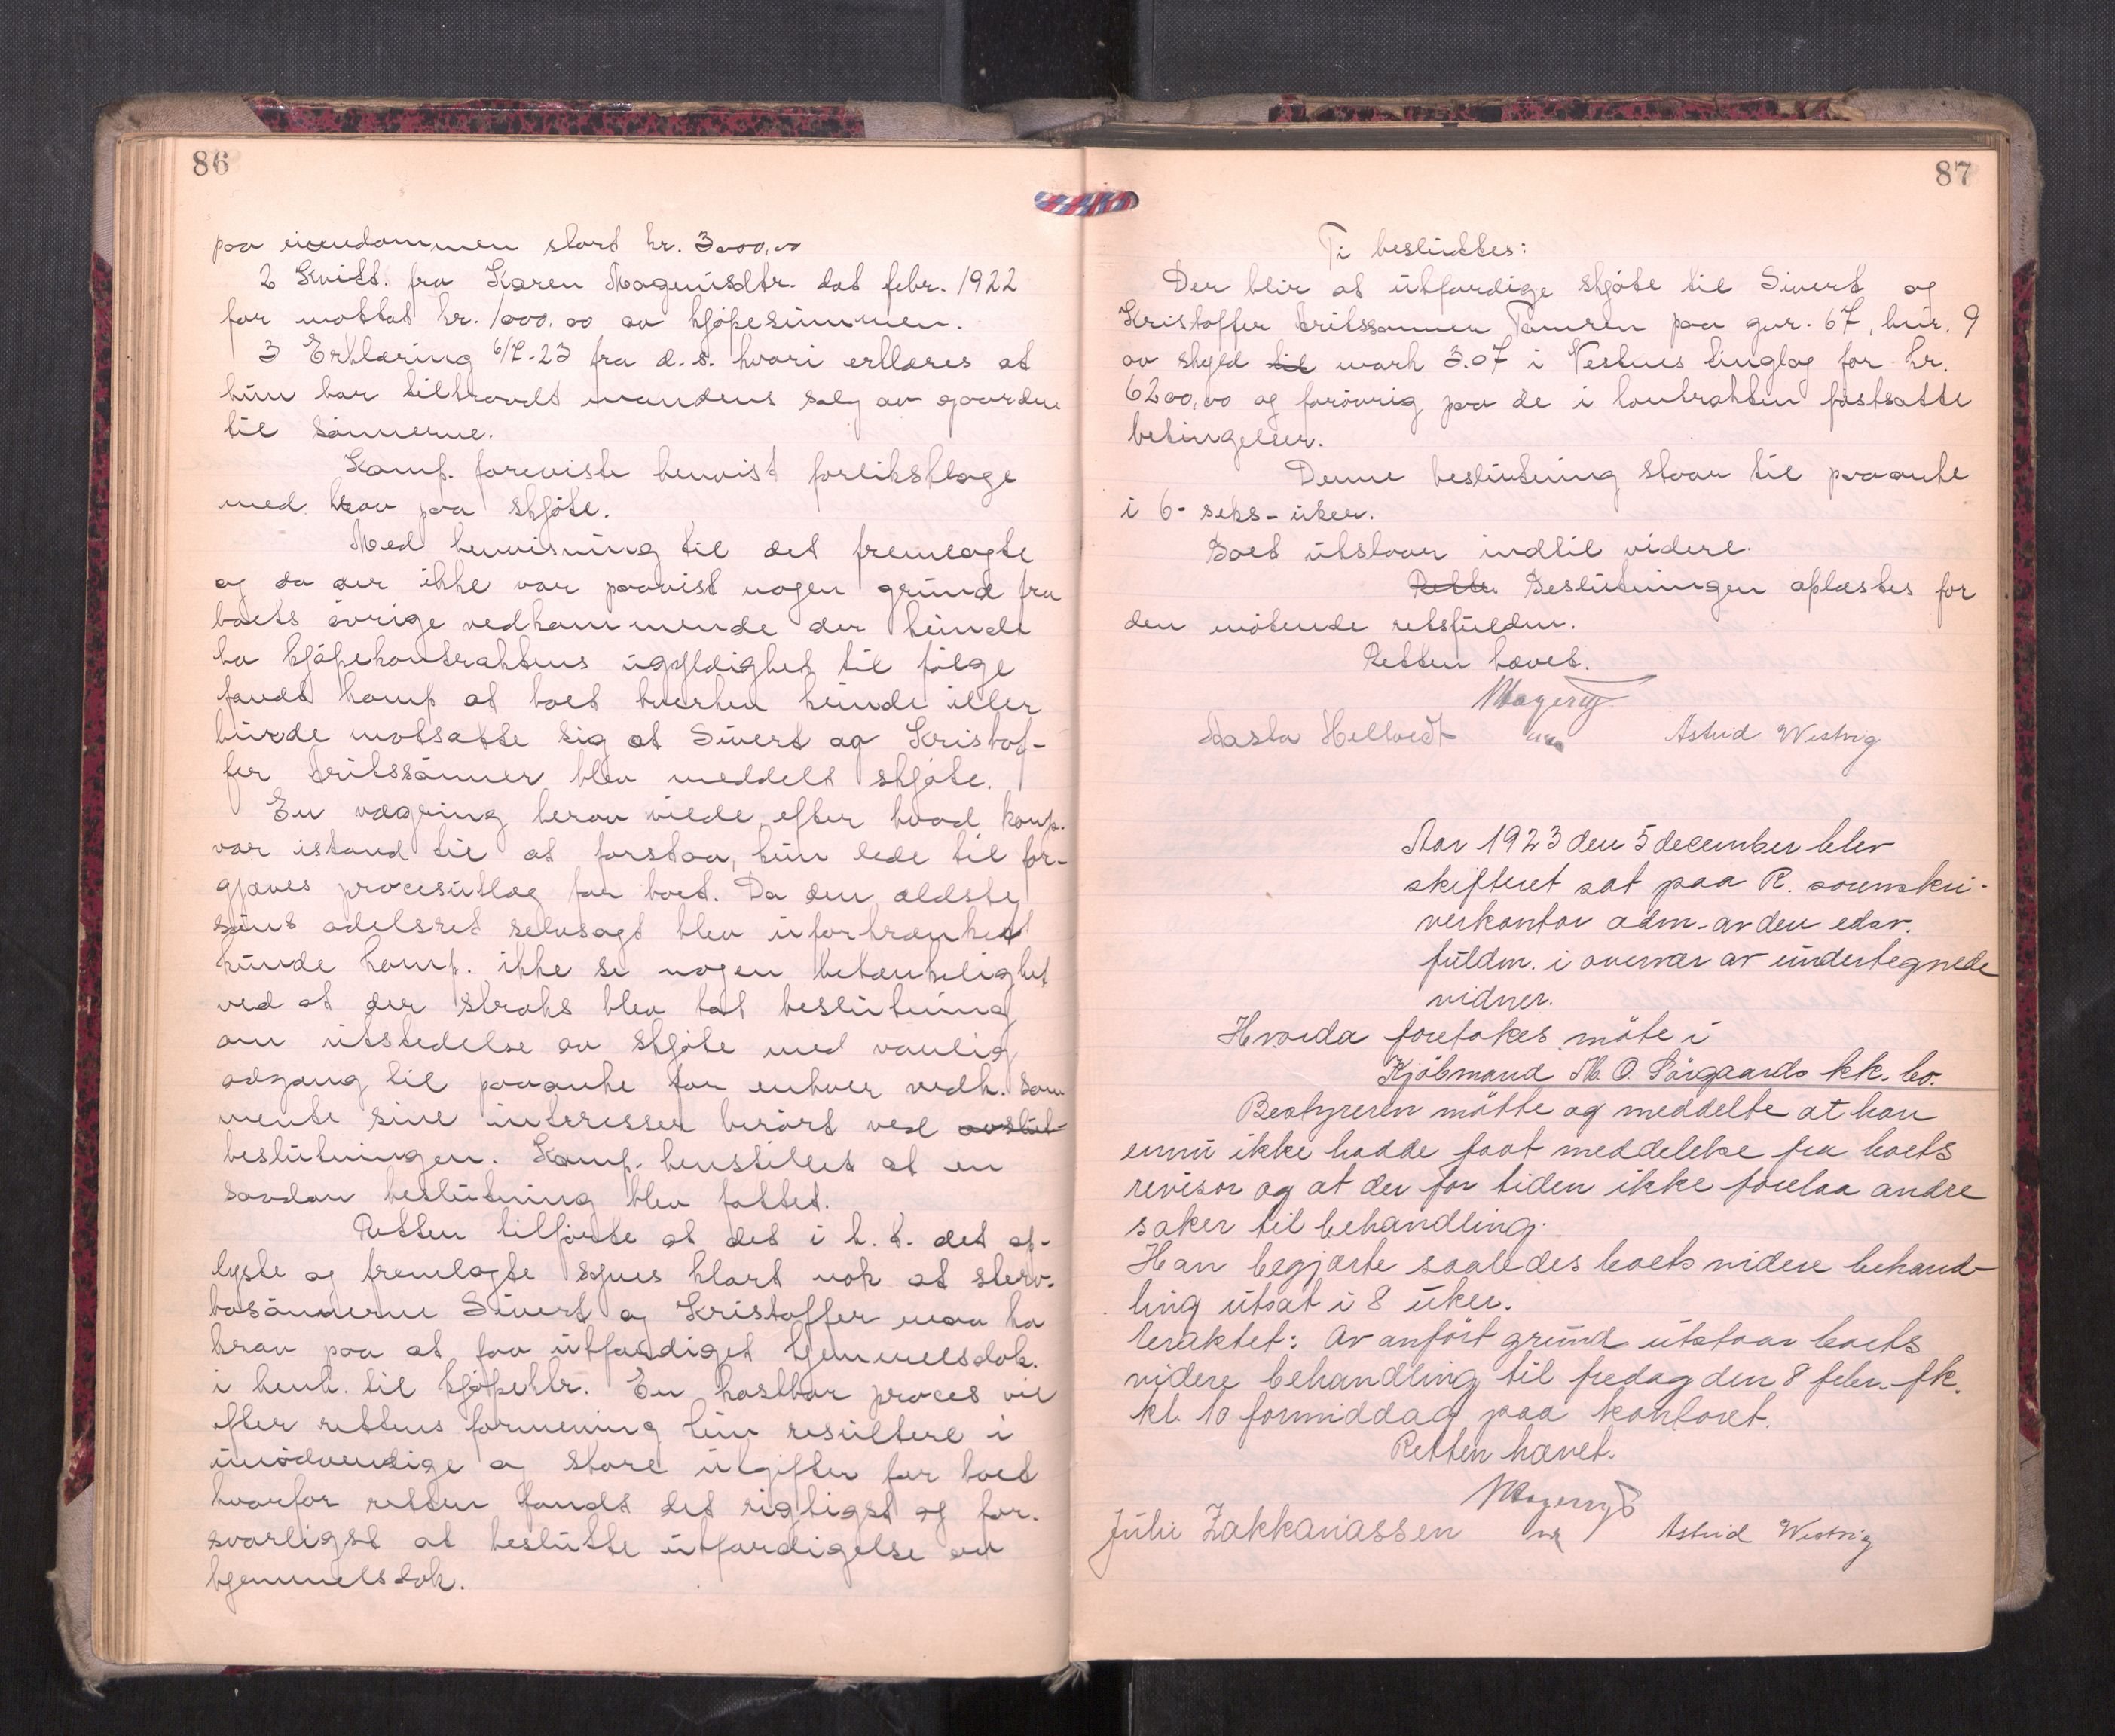 86
paa eiendommen stort kr. 3000,00
2 Kvitt. fra Karen Magnusdtr. dat febr. 1922
for mottat kr. 1000,00 av kjøpesummen.
3 Erklæring 6/7-23 fra d. s. hvori erklæres at
hun har tiltraadt mandens salg av gaarden
til sönnerne.
Komp. foreviste henvist forliksklage
med krav paa skjöte.
Med henvisning til det fremlagte
og da der ikke var paavist nogen grund fra
boets övrige vedkommende der kunde
ha kjöpekontraktens ugyldighet til fölge
fandt komp at boet hverken kunde eller
burde motsætte sig at Sivert og Kristof-
fer Eritssönner blev meddelt skjöte.
En vægring herav vilde efter hvad komp.
var istand til at forstaa, kun lede til for-
gjæves procesutlæg for boet. Da den ældste
söns odelsret selvsagt blev uforkrænket
kunde komp. ikke se nogen betænkelighet
ved at der straks blev tat beslutning
om utstedelse av skjöte med vanlig
adgang til paaanke for enhver vedk. som
mente sine interesser berört ved avslut-
beslutningen. Komp. henstillet at en
saadan beslutning blev fattet.
Retten tilförte at det i h. t. det op-
lyste og fremlagte synes klart nok at sterv-
bosönnerne Sivert og Kristoffer maa ha
krav paa at faa utfærdiget hjemmelsdok.
i henh. til kjöpektr. En kostbar proces vil
efter rettens formening kun resultere i
unödvendige og store utgifter for boet
hvorfor retten fandt det rigtigst og for-
svarligst at beslutte utfærdigelse av
hjemmelsdok.
87
Ti besluttes:
Der blir at utfærdige skjöte til Sivert og
Kristoffer Eritssønner Tomren paa gnr. 67, bnr. 9
av skyld til mark 3.07 i Vestnes tinglag for kr.
6200,00 og forövrig paa de i kontrakten fastsatte
betingelser.
Denne beslutning staar til paaanke
i 6- seks- uker.
Boet utstaar indtil videre.
Rette Beslutningen oplæstes for
den mötende retsfuldm.
Retten hævet.
Aasta Hellvedt Astrid Westvig
Aar 1923 den 5 december blev
skifteret sat paa R. sorenskri-
verkontor adm. av den edsv.
fuldm. i overvær av undertegnede
vidner.
Hvorda foretokes möte i
Kjöbmand M. O. Sörgaards kk. bo.
Bestyreren mötte og meddelte at han
ennu ikke hadde faat meddelelse fra boets
revisor og at der for tiden ikke forelaa andre
saker til behandling.
Han begjærte saaledes boets videre behand-
ling utsat i 8 uker.
Eraktet: Av anfört grund utstaar boets
videre behandling til fredag den 8 febr. fk.
kl. 10 formiddag paa kontoret.
Retten hævet.
Julie Zakkariassen Astrid Westvig